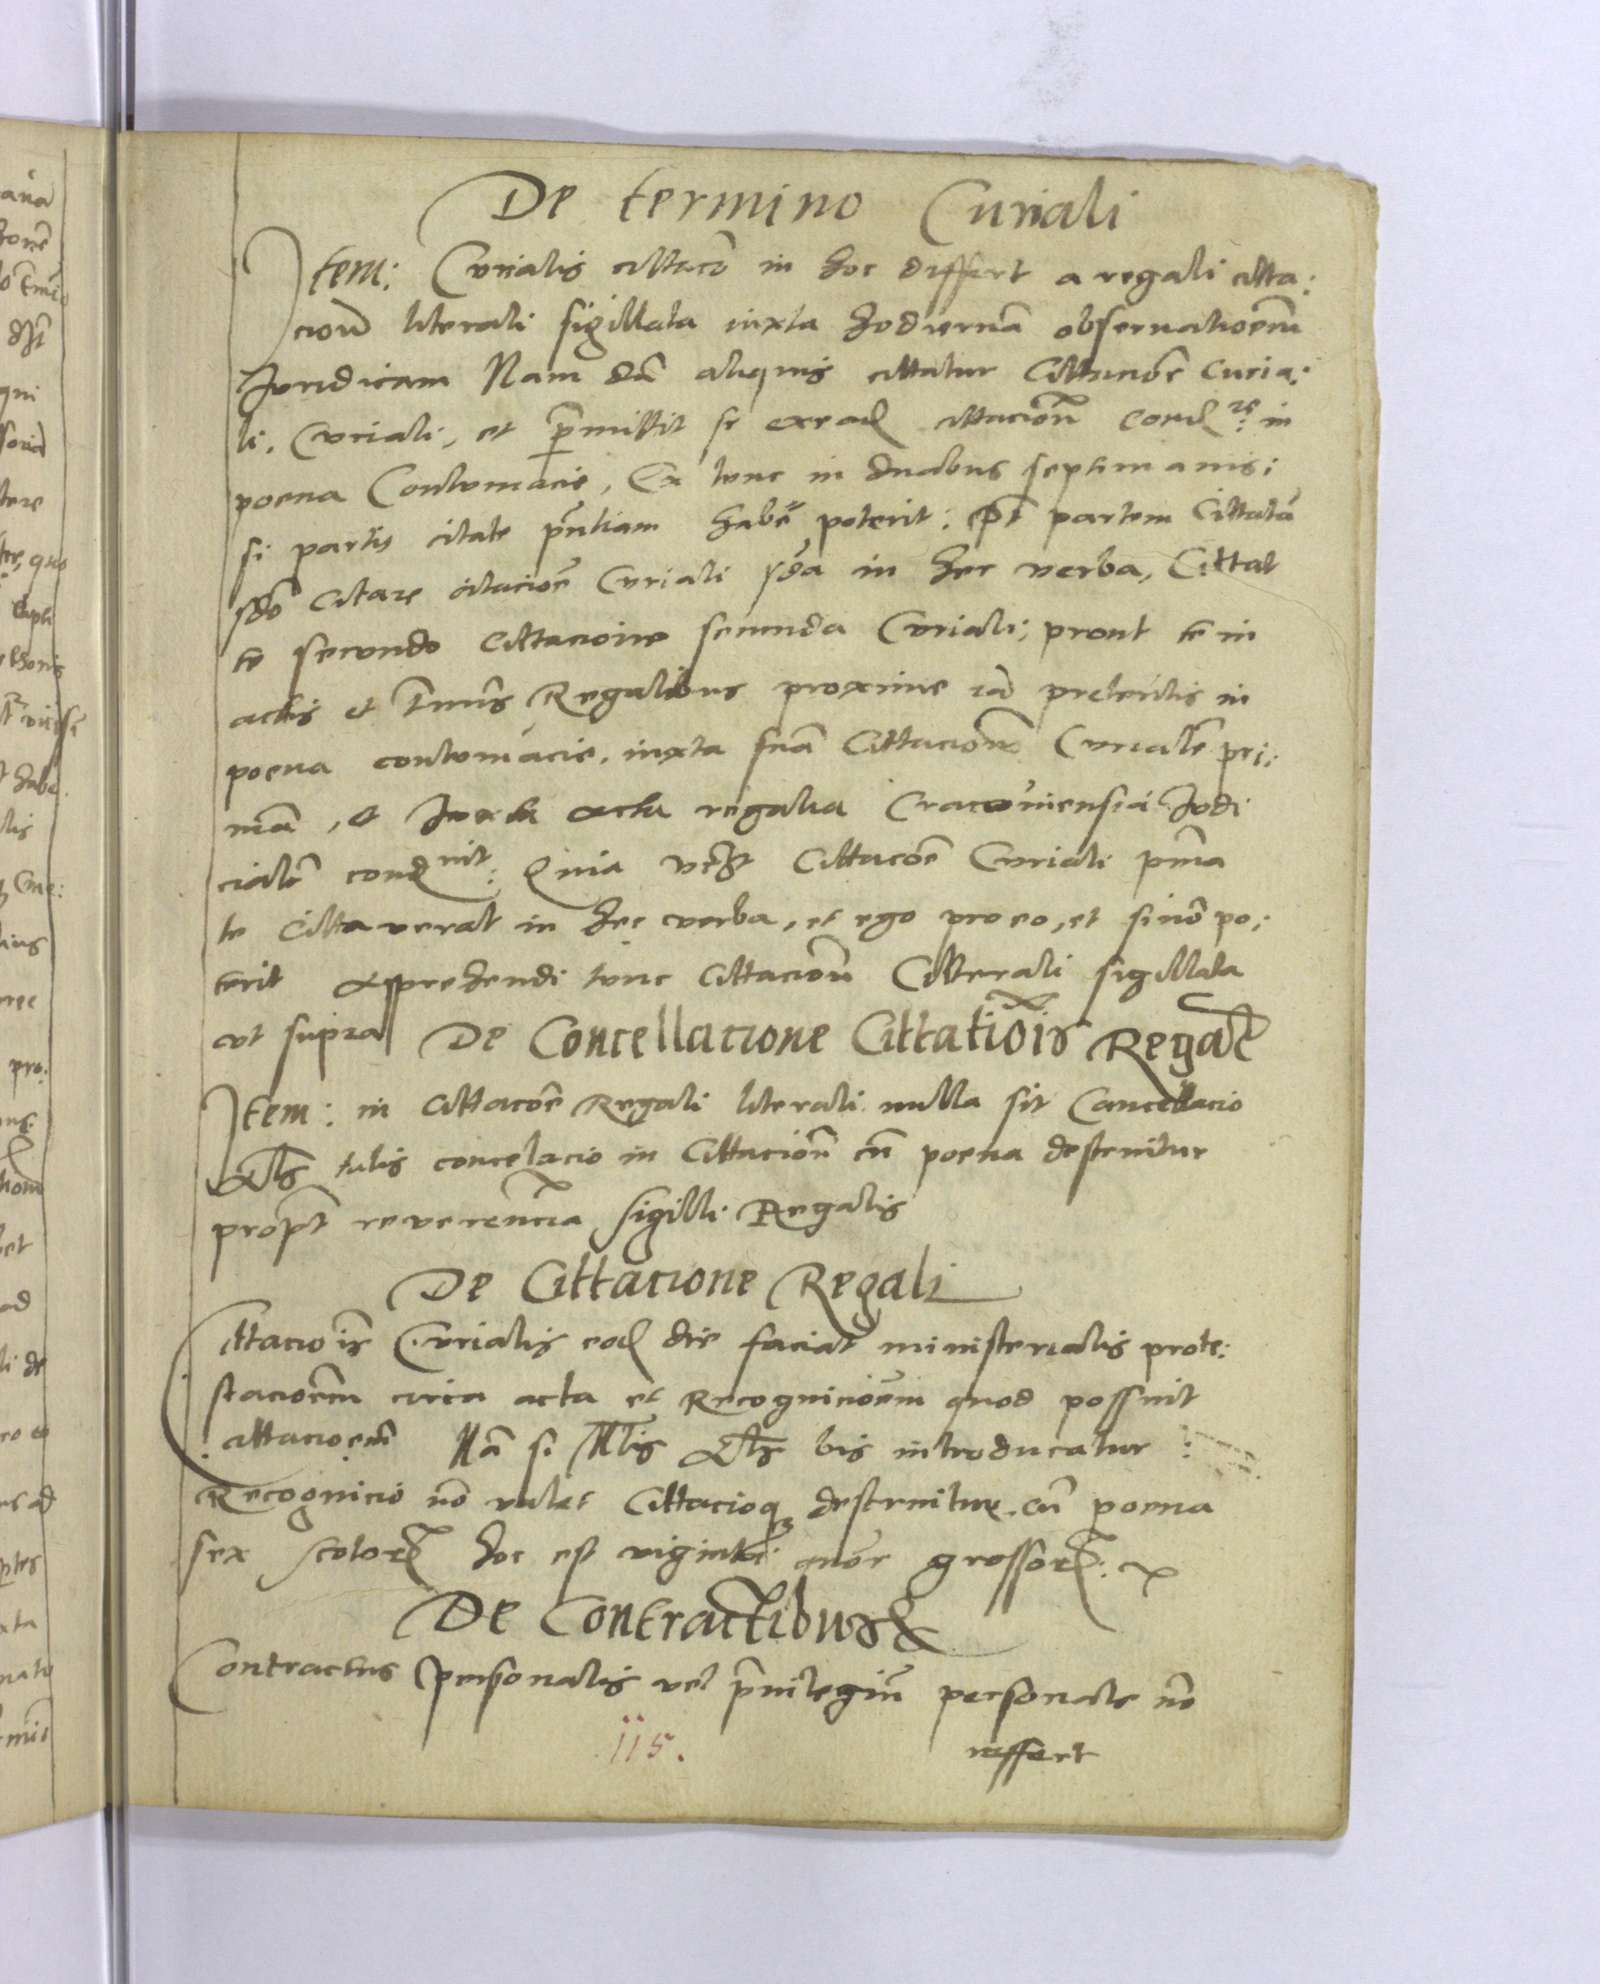 De termino Curiali
Item: Curialis cittacō in hoc differt a regali citta:
cioñ literali sigillata iuxta hodiernā obseruatioēm
Juridicam Nam dū aliquis cittatur Cittacioē Curia:
li, Curiali, et p̄mittit se ex ead cittacioñ cond re: in
poena Contumacie, Ex tunc in duabus septimanis:
si partis citate pñtiam habē poterit: p̄t partem Cittatā
sdō citare citacioē Curiali sdā in hec verba, Cittat
te secundo Cittacione secunda Curiali: prout te in
actis et t̄mis Regalibus proxime iā preteritis in
poena contumacie, iuxta suā Cittacionē Curialē pri:
mā, et Juxta acta regalia Cracouiensia Judi
cialē cond uit: Quia Cittacōe Curiali pma
te Cittauerat in hec verba, et ego pro eo, et si nō po:
terit apprehendi tunc Cittacioñ Litterali sigillata
ut supra De Concellacione Cittatiōis Regal
Item: in Cittacōe Regali literali nulla sit Cancellacio
als talis concelacio in Cittacioñ cū poena destruitur
propt reuerencia sigilli Regalis
De Cittacione Regali
Cittaciois Curialis eod die faciat ministerialis prote:
stacioēm circa acta et Recognicioēm quod possuit
cittacioem Nā si als bis introducatur:
Recognicio nō valet Cittacioq destruitur cū poena
sex scotor hoc est viginti quor grossor:
De Contractibus &
Contractus personalis vel p̄uilegiū personale nō
115. reffert